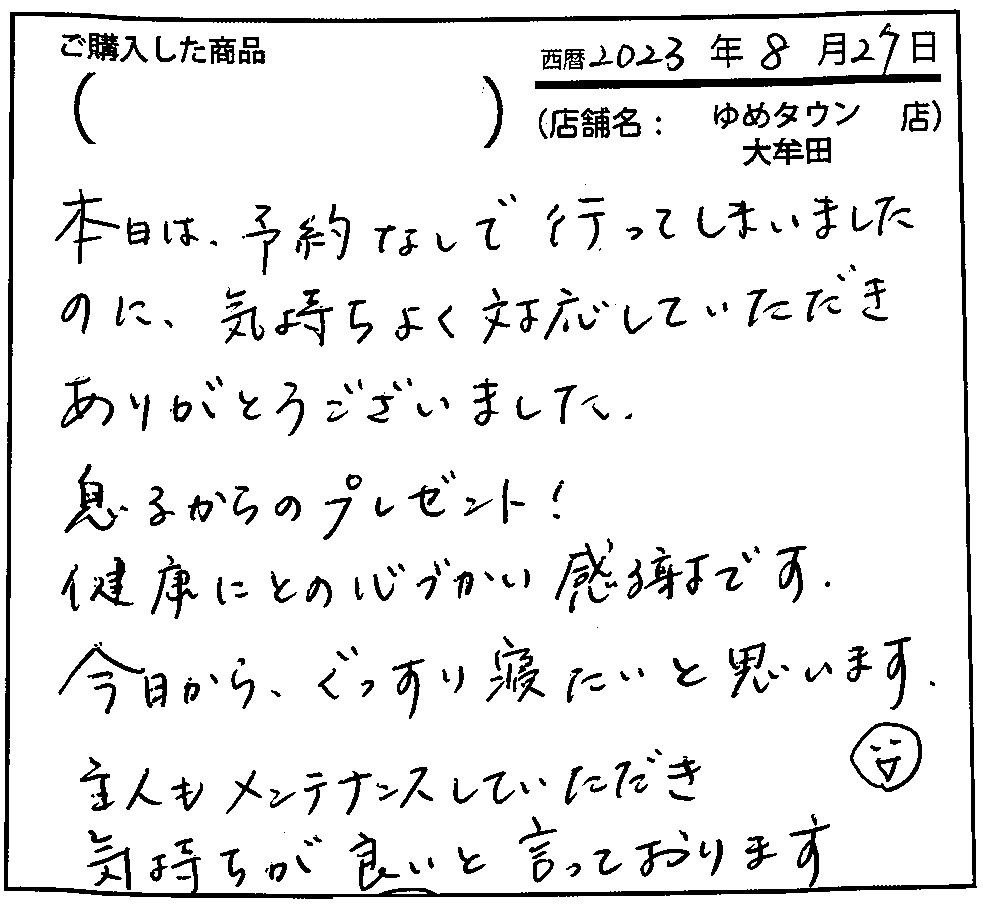 ご購入した商品
西暦2023年8月27日
( )
(店舗名： ゆめタウン 店)
大牟田
本日は、予約なしで行ってしまいました
のに、気持ちよく対応していただき
ありがとうございました.
息子からのプレゼント！
健康にとの心づかい感謝です.
今日から、ぐっすり寝たいと思います.
主人もメンテナンスしていただき
気持ちが良いと言っております